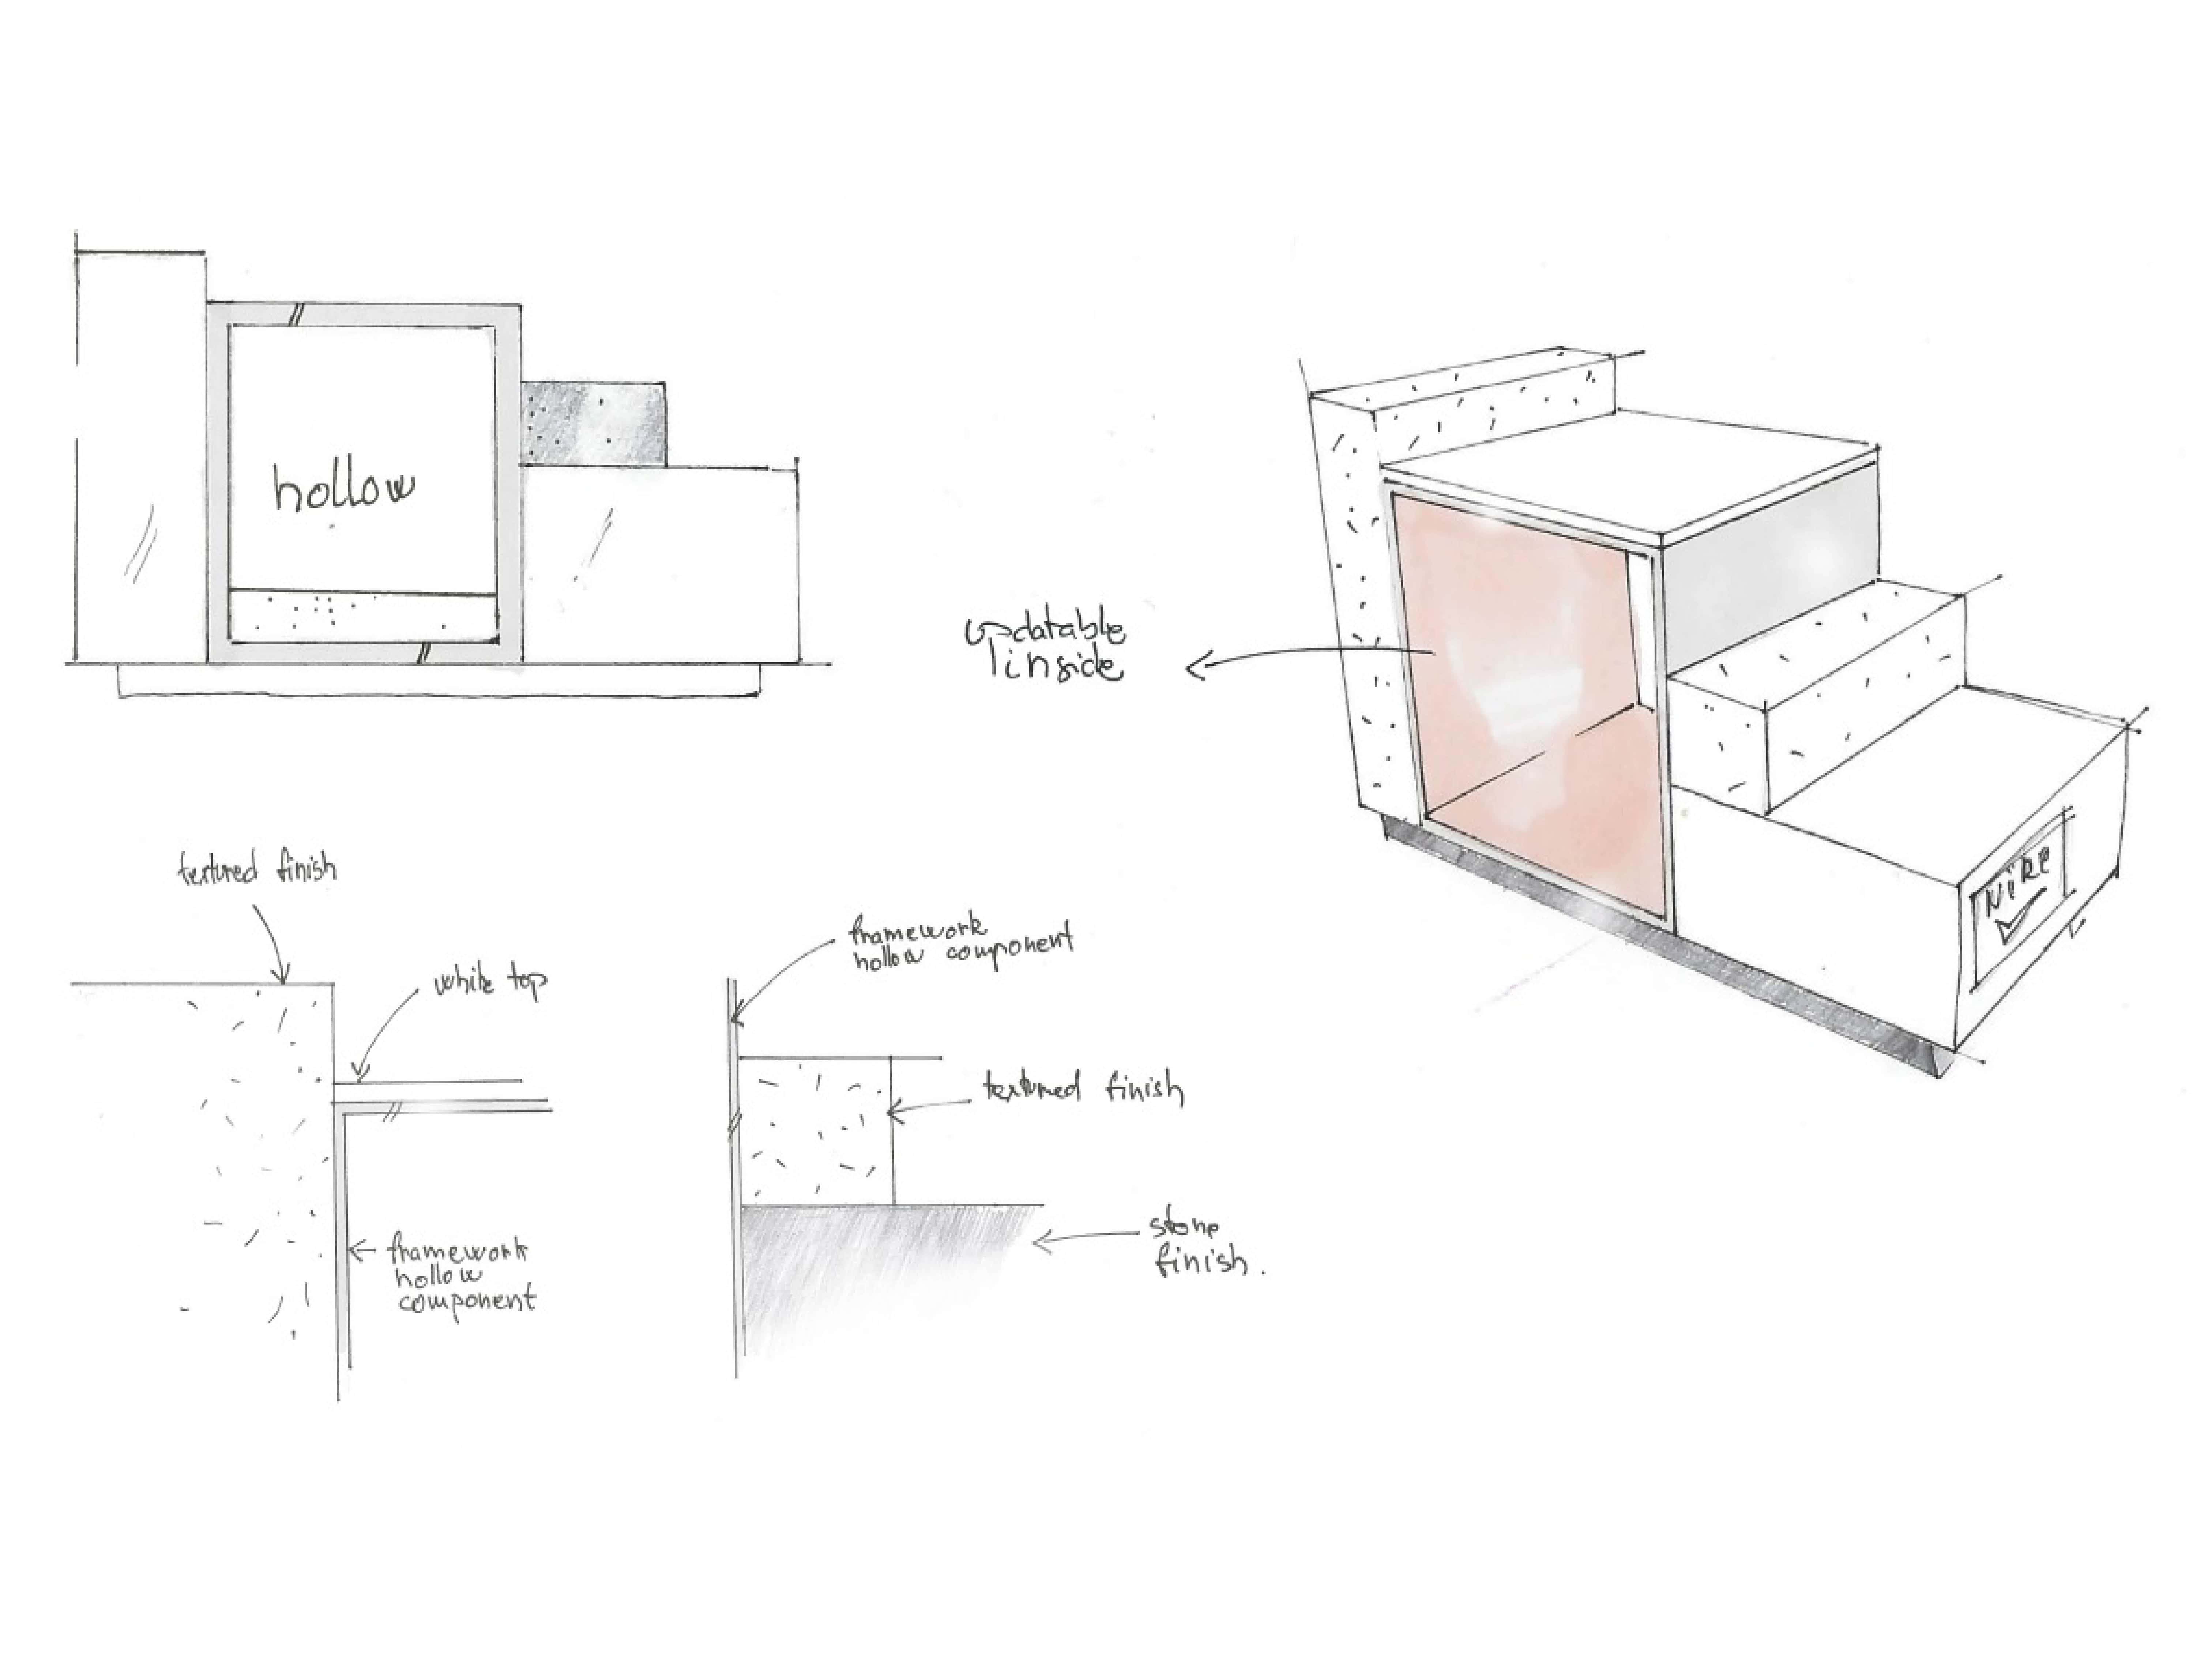 hollow
updatable
inside
NIKE
textured finish
white top
framework
hollow
component
framework
hollow component
textured finish
stone
finish.